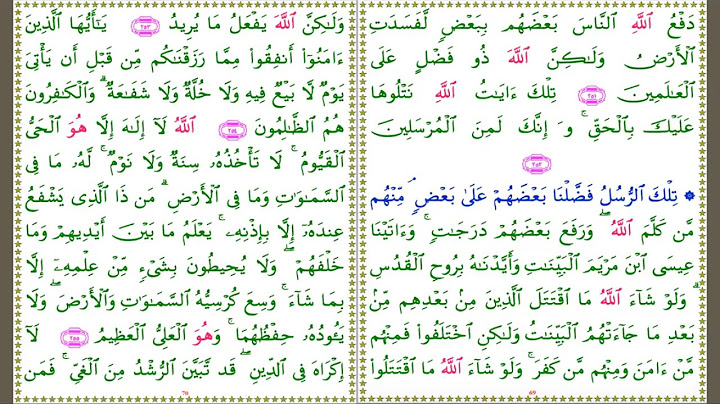 دَفْعُ ٱللَّهِ ٱلنَّاسَ بَعْضَهُم بِبَعْضٍ لَّفَسَدَتِ
ٱلْأَرْضُ وَلَٰكِنَّ ٱللَّهَ ذُو فَضْلٍ عَلَى
ٱلْعَٰلَمِينَ ٢٥١ تِلْكَ ءَايَٰتُ ٱللَّهِ نَتْلُوهَا
عَلَيْكَ بِٱلْحَقِّ ۚ وَإِنَّكَ لَمِنَ ٱلْمُرْسَلِينَ
٢٥٢
۞ تِلْكَ ٱلرُّسُلُ فَضَّلْنَا بَعْضَهُمْ عَلَىٰ بَعْضٍ ۘ مِّنْهُم
مَّن كَلَّمَ ٱللَّهُ ۖ وَرَفَعَ بَعْضَهُمْ دَرَجَٰتٍ ۚ وَءَاتَيْنَا
عِيسَى ٱبْنَ مَرْيَمَ ٱلْبَيِّنَٰتِ وَأَيَّدْنَٰهُ بِرُوحِ ٱلْقُدُسِ
ۗ وَلَوْ شَآءَ ٱللَّهُ مَا ٱقْتَتَلَ ٱلَّذِينَ مِنۢ بَعْدِهِم مِّنۢ
بَعْدِ مَا جَآءَتْهُمُ ٱلْبَيِّنَٰتُ وَلَٰكِنِ ٱخْتَلَفُوا۟ فَمِنْهُم
مَّنْ ءَامَنَ وَمِنْهُم مَّن كَفَرَ ۚ وَلَوْ شَآءَ ٱللَّهُ مَا ٱقْتَتَلُوا۟
69
وَلَٰكِنَّ ٱللَّهَ يَفْعَلُ مَا يُرِيدُ ٢٥٣ يَٰٓأَيُّهَا ٱلَّذِينَ
ءَامَنُوٓا۟ أَنفِقُوا۟ مِمَّا رَزَقْنَٰكُم مِّن قَبْلِ أَن يَأْتِىَ
يَوْمٌ لَّا بَيْعٌ فِيهِ وَلَا خُلَّةٌ وَلَا شَفَٰعَةٌ ۗ وَٱلْكَٰفِرُونَ
هُمُ ٱلظَّٰلِمُونَ ٢٥٤ ٱللَّهُ لَآ إِلَٰهَ إِلَّا هُوَ ٱلْحَىُّ
ٱلْقَيُّومُ ۚ لَا تَأْخُذُهُۥ سِنَةٌ وَلَا نَوْمٌ ۚ لَّهُۥ مَا فِى
ٱلسَّمَٰوَٰتِ وَمَا فِى ٱلْأَرْضِ ۗ مَن ذَا ٱلَّذِى يَشْفَعُ
عِندَهُۥٓ إِلَّا بِإِذْنِهِۦ ۚ يَعْلَمُ مَا بَيْنَ أَيْدِيهِمْ وَمَا
خَلْفَهُمْ ۖ وَلَا يُحِيطُونَ بِشَىْءٍ مِّنْ عِلْمِهِۦٓ إِلَّا
بِمَا شَآءَ ۚ وَسِعَ كُرْسِيُّهُ ٱلسَّمَٰوَٰتِ وَٱلْأَرْضَ ۖ وَلَا
يَـُٔودُهُۥ حِفْظُهُمَا ۚ وَهُوَ ٱلْعَلِىُّ ٱلْعَظِيمُ ٢٥٥ لَآ
إِكْرَاهَ فِى ٱلدِّينِ ۖ قَد تَّبَيَّنَ ٱلرُّشْدُ مِنَ ٱلْغَىِّ ۚ فَمَن
70